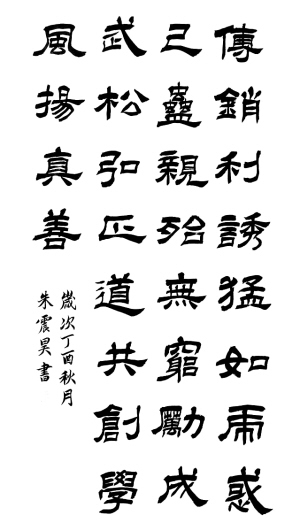 傳銷利誘猛如虎惑
己蠱親殆無窮勵成
武松引正道共創學
風揚真善
歲次丁酉秋月
朱震昊書